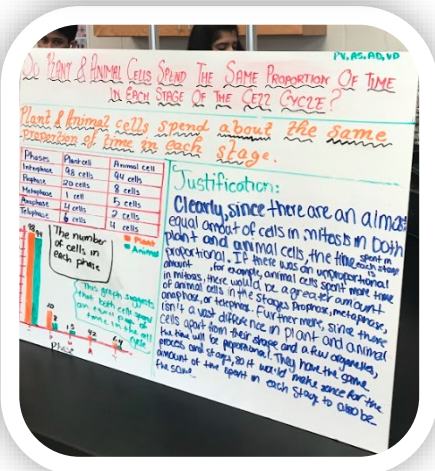 PV, AS, AD, VD
Do Plant & Animal Cells Spend The Same Proportion Of Time
In Each Stage Of The Cell Cycle?
Plant & Animal cells spend about the same
proportion of time in each stage.
Phases Plant cell Animal cell
Interphase 98 cells 94 cells
Prophase 20 cells 8 cells
Metaphase 1 cell 5 cells
Anaphase 4 cells 2 cells
Telophase 6 cells 4 cells
The number
of cells in
each phase
Plant
Animal
This graph suggests
that both cells spend
an even pair of
time in the cell
cycle
Phase
Justification:
Clearly, since there are an almost
equal amount of cells in mitosis in both
plant and animal cells, the time spent in each stage is
proportional. If there was an unproportional
amount, for example, animal cells spent more time
in mitosis, there would be a greater amount
of animal cells in the stages prophase, metaphase,
anaphase, or telephase. Furthermore, since there
isn't a vast difference in plant and animal
cells apart from their shape and a few organelles,
the time will be proportional. They have the same
process and stages, so it would make sence for the
amount of time spent in each stage to also be
the same.